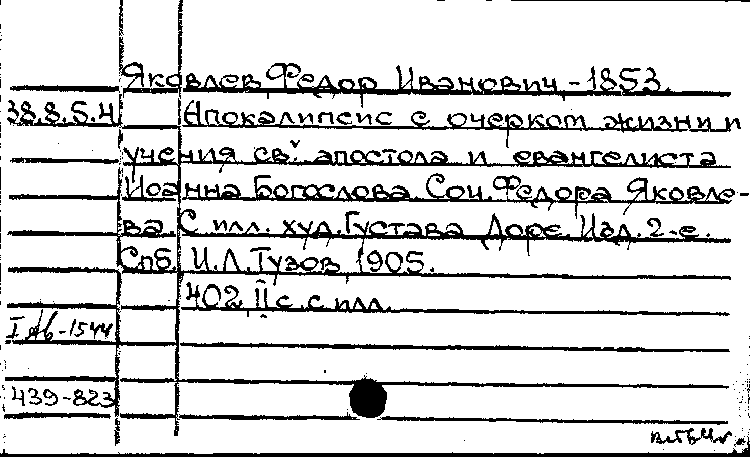 Яковлев Федор Иванович, - 1853.
38.8.5.4 Апокалипсис с очерком жизни и
учения св. апостола и евангелиста
Иоанна Богослова. Соч. Федора Яковле-
ва. С илл. худ. Густава Доре. Изд. 2-е.
Спб. И.Л. Тузов, 1905.
402, II с. с илл.
I Ав-1544
439-823